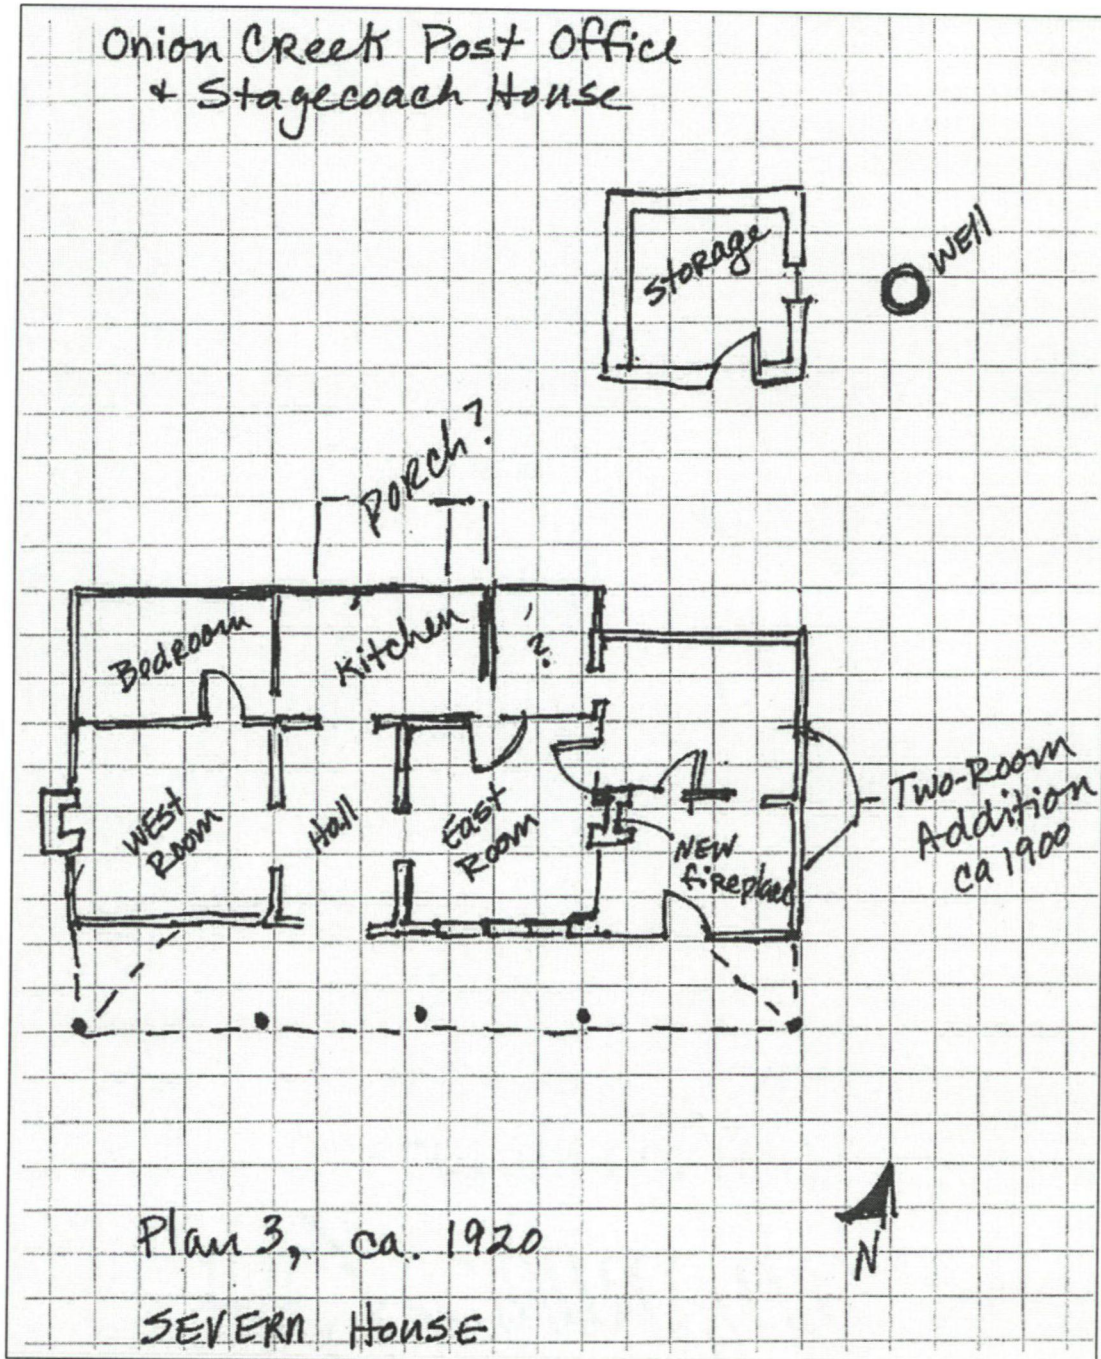 Onion Creek Post Office
+ Stagecoach House
Storage
WELL
PORCH?
Bedroom
Kitchen
?
WEST
Room
Hall
East
Room
NEW
fireplace
Two-Room
Addition
ca 1900
N
Plan 3, ca. 1920
SEVERN HOUSE